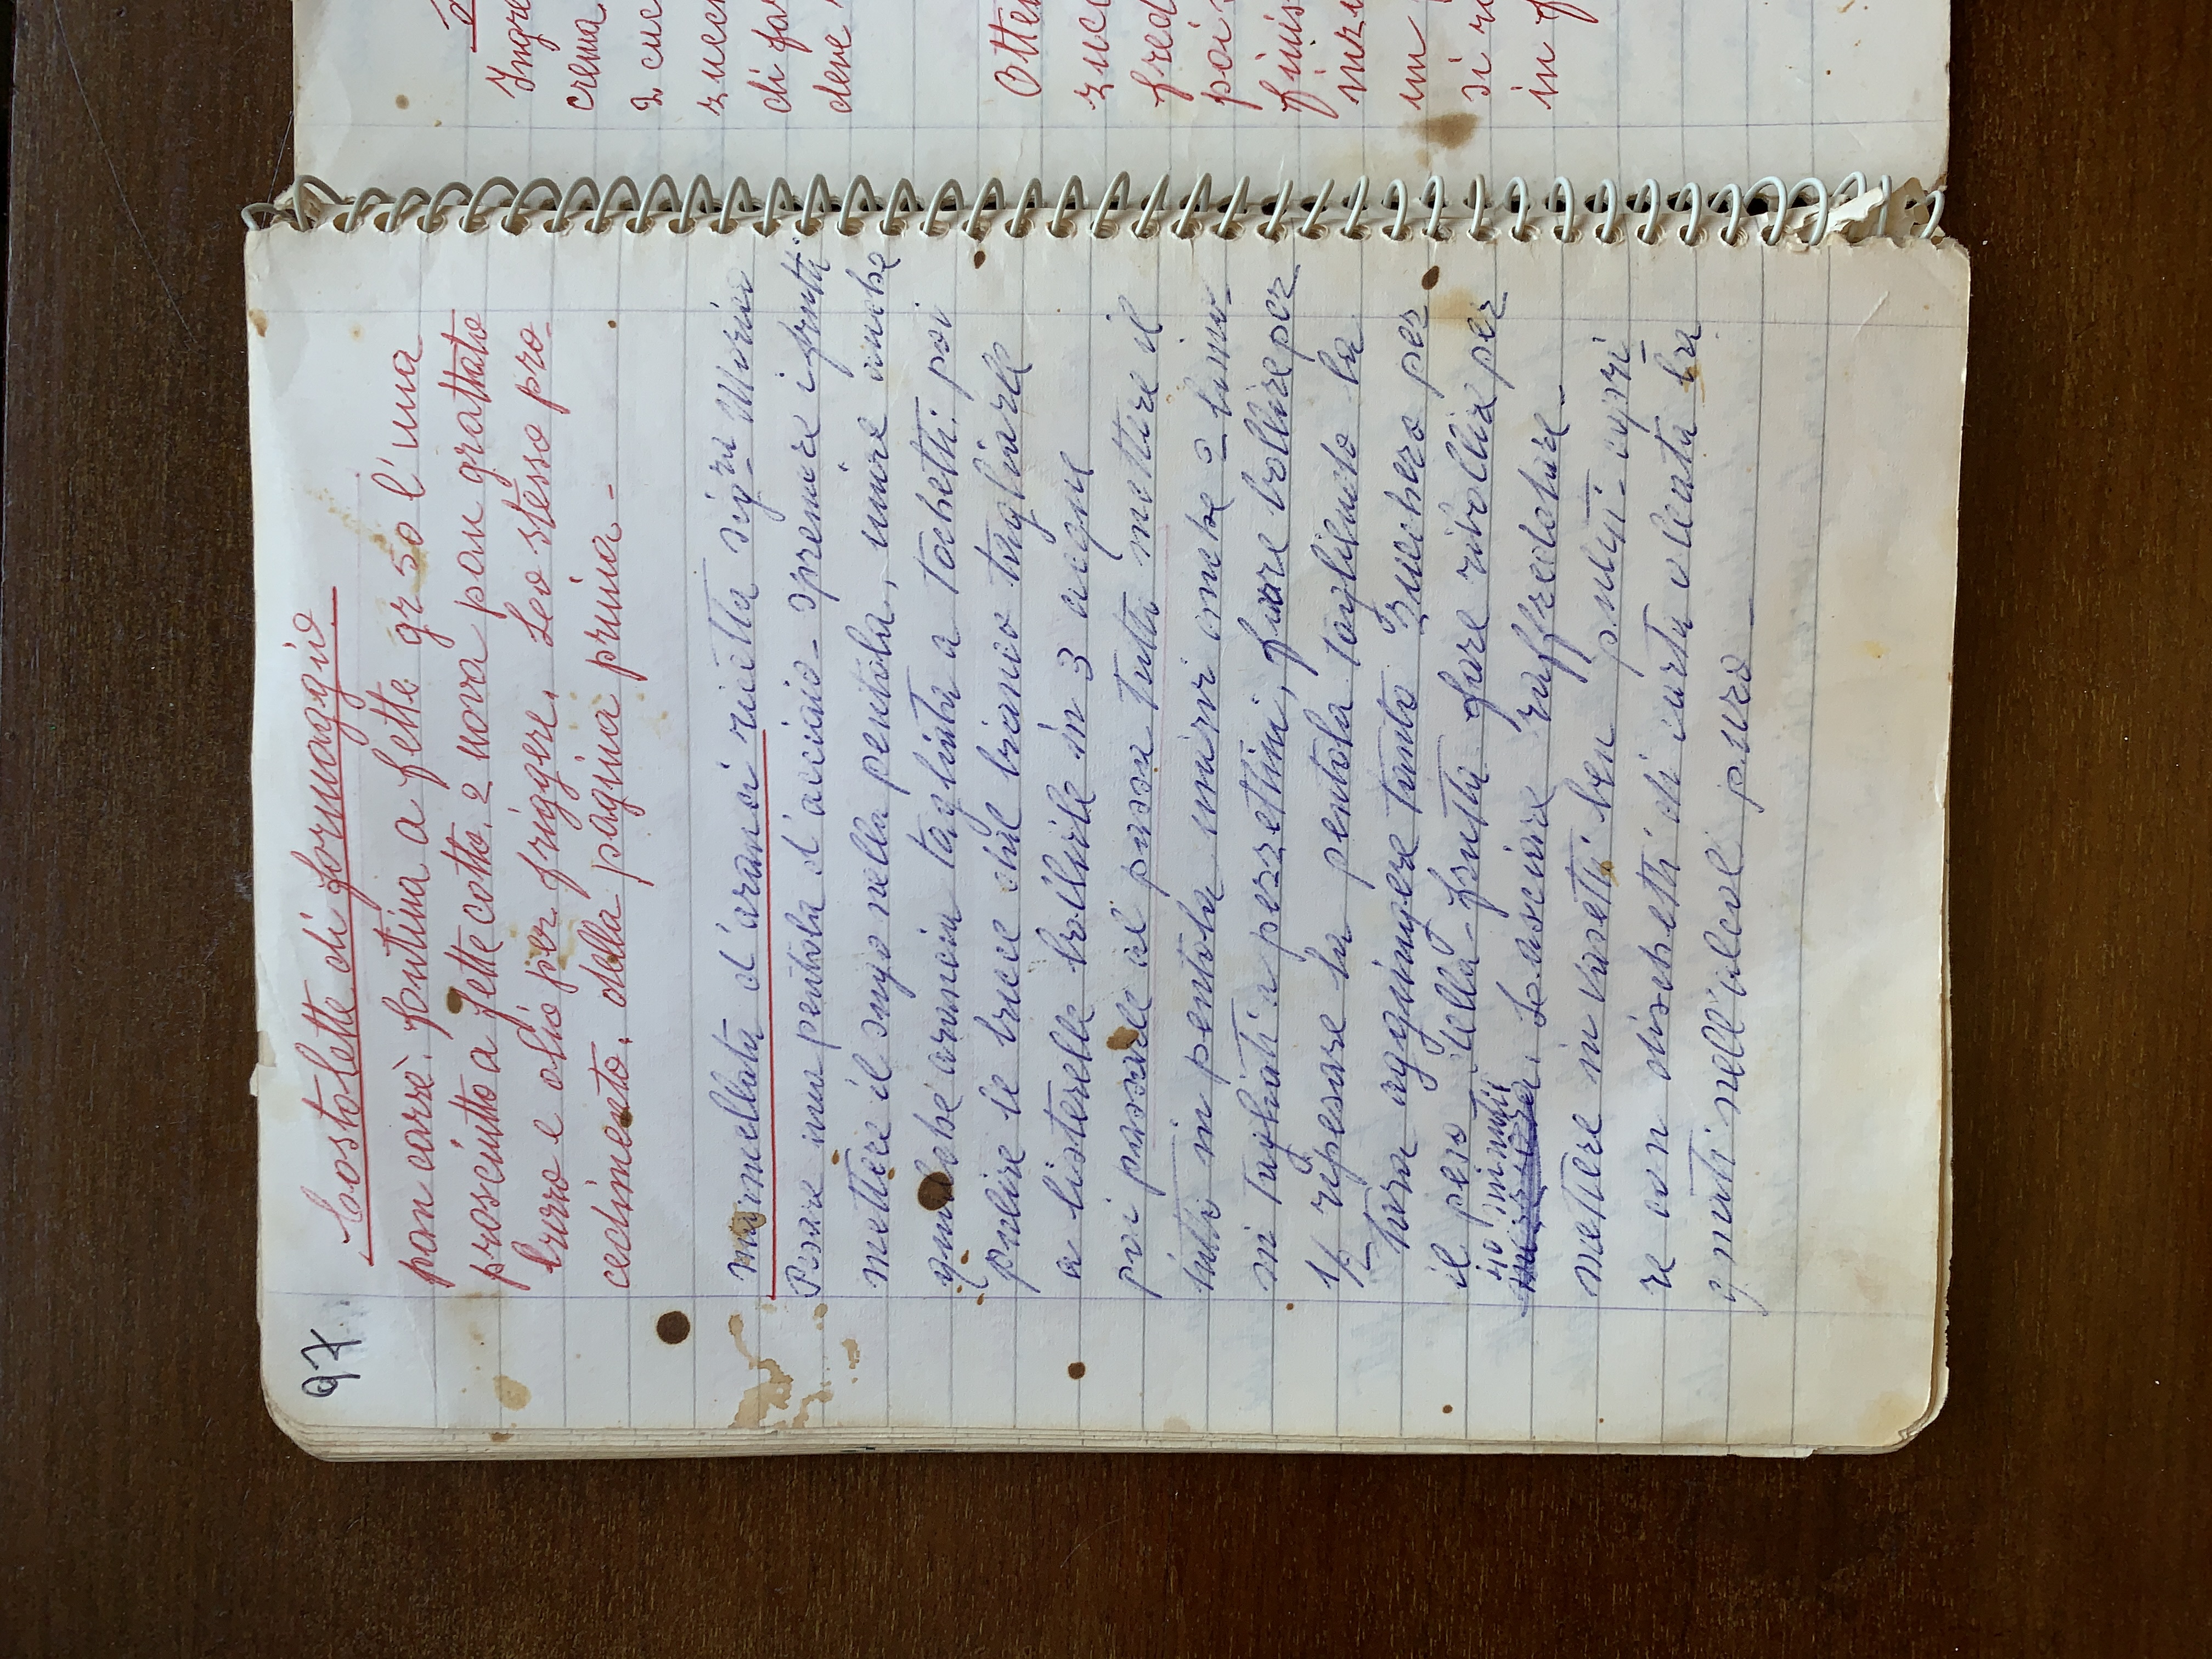 97.
Costolette di formaggio.
pan carrè. fontina a fette gr 50 l'una
prosciutto a fette cotto. 2 uova pan grattato
burro e olio per friggere. Lo stesso pro-
cedimento. della pagina prima -
marmellata d'aranci ricetta sig.ra
Pesare una pentola d'acciaio - spremere i frutti
mettere il sugo nella pentola, unire anche
qualche arancia tagliata a tochetti: poi
pulire le bucce dal bianco tagliarle
a listerelle bollirle in 3 acque
poi passarle al passa tutto mettere il
tutto in pentola unirvi anche 2 limo-
ni tagliati a pezzettini, fare bollire per
1/2 ripesare la pentola togliendo la
tara aggiungere tanto zucchero per
il peso della frutta fare ribollire per
40 minuti
mezz'ora. Lasciare raffreddare -
mettere in vasetti ben puliti - copri-
re con dischetti di carta oleata ba
gnati nell'alcol puro -
Ingre
crema
2 cuc
zucc
di far
deve
Otte
zucc
fred
poi
finis
un
si
in f